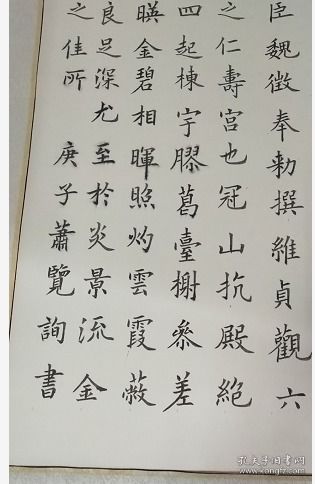 臣魏徵奉勑撰維貞觀六
之仁壽宮也冠山抗殿絶
四起棟宇膠葛臺榭參差
暎金碧相暉照灼雲霞蔽
良足深尤至於炎景流金
之佳所 庚子蕭覽詢書
孔夫子旧书网
www.kongfz.com